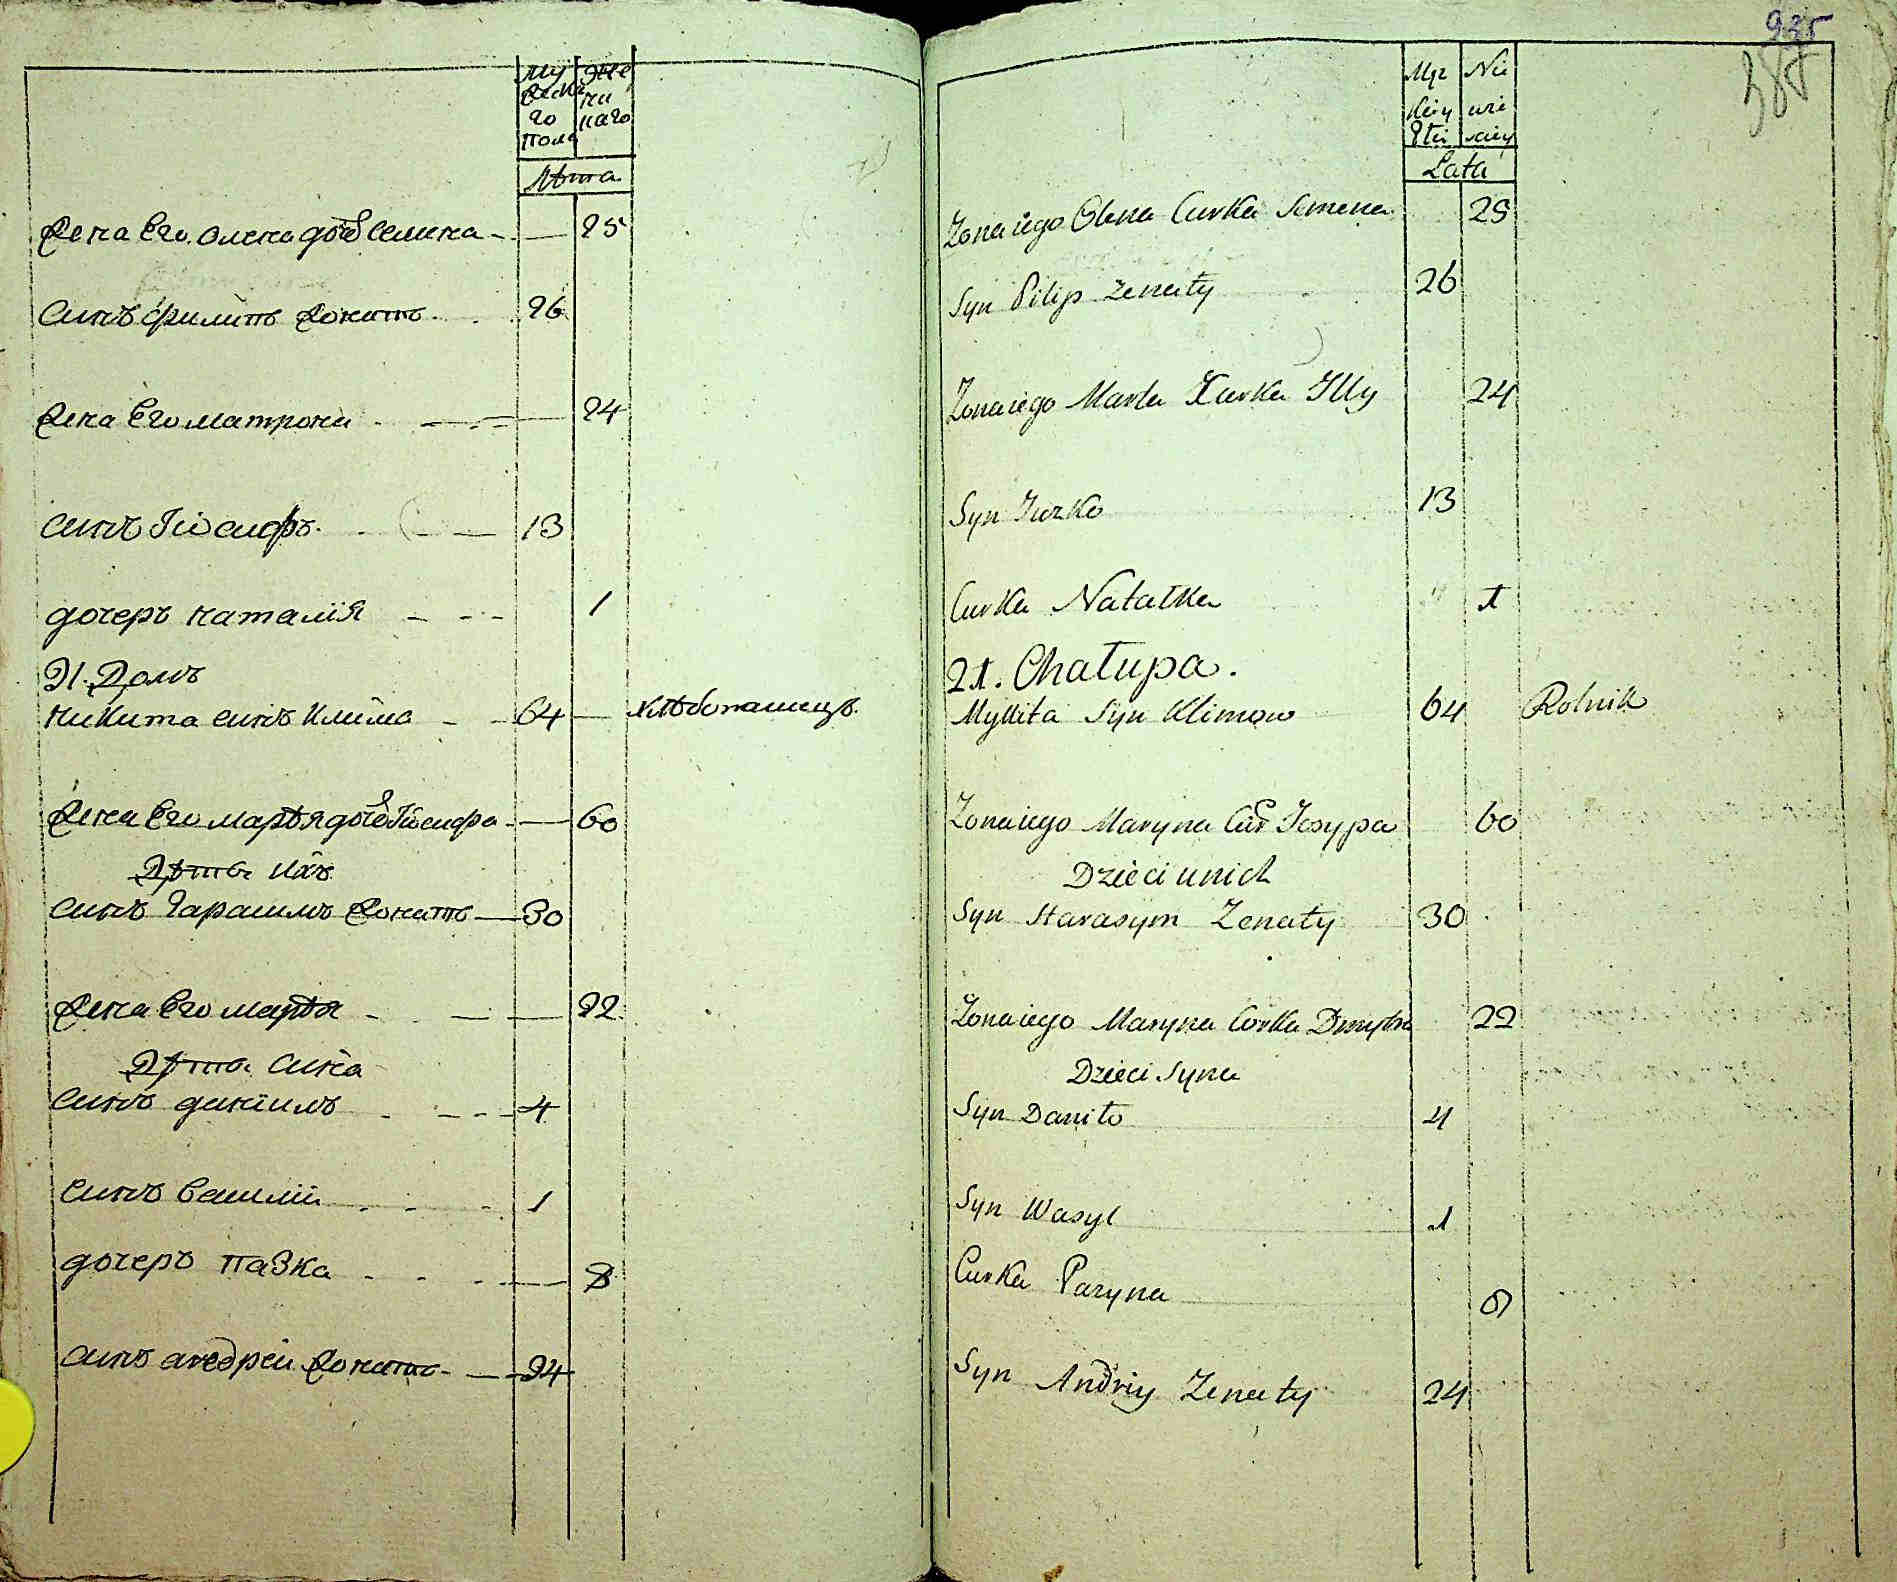 му жеска го пола
же на наго
Лѣта
жена Его Олена доч Семена 25
синъ филипъ жонатъ 26
жена Его матрона 24
синъ Іосифъ 13
дочерь наталія 1
21. Домъ
никита синъ клима 64 хлѣбопашецъ
жена Его марѣя доч Іосифа 60
Дѣти ихъ
синъ Гарасимъ жонатъ 30
жена Его марѣя 22
Дѣти сина
синъ даніилъ 4
синъ василій 1
дочерь пазка 8
синъ андрей жонатъ 24
935
Męz kiey Płci
Nie wie sciey
Lata
Zona iego Olena Curka Semena 25
Syn Pilip zenaty 26
Zona iego Marta Curka Illy 24
Syn Jurko 13
Curka Natałka 1
21. Chałupa.
Mykita Syn Klimow 64 Rolnik
Zona iego Maryna Cur Josypa 60
Dzieci u nich
Syn Harasym Zenaty 30
Zona iego Maryna Corka Dmytra 22
Dzieci Syna
Syn Daniło 4
Syn Wasyl 1
Curka Pazyna
Syn Andriy Zenaty 24